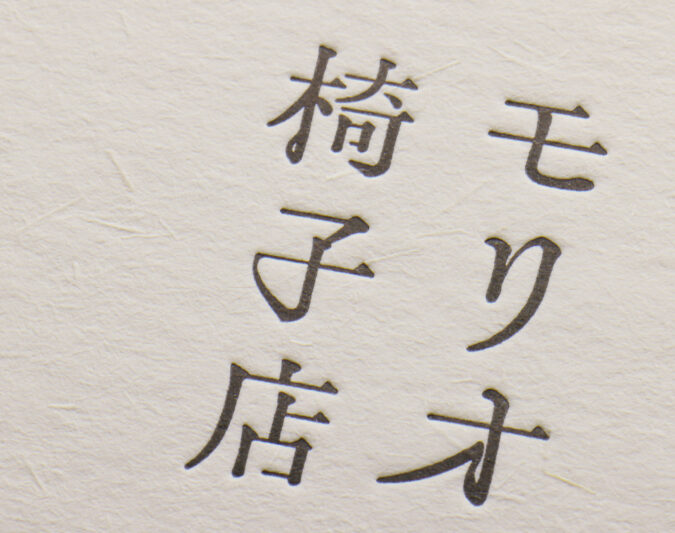 モリオ
椅子店